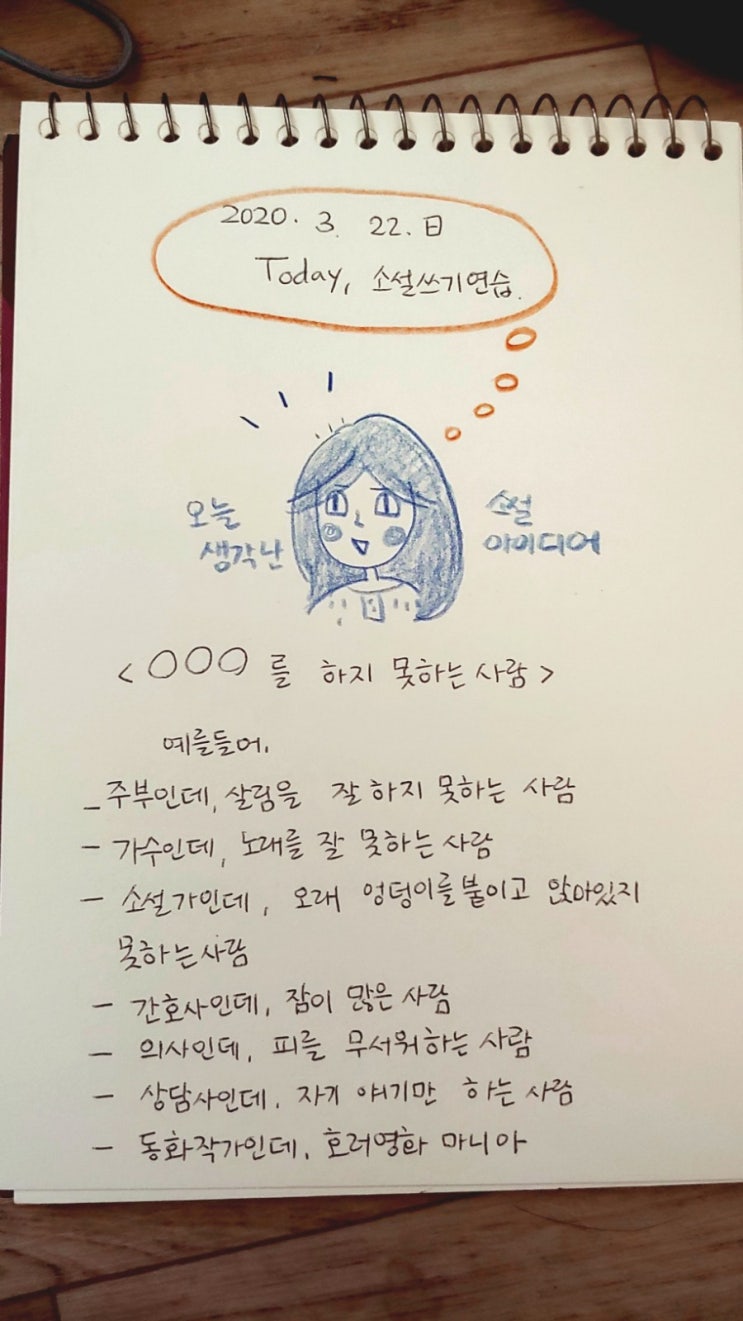 2020. 3. 22. 日
Today, 소설쓰기연습.
오늘
생각난
소설
아이디어
< ○○○ 를 하지 못하는 사람 >
예를들어.
- 주부인데, 살림을 잘 하지 못하는 사람
- 가수인데, 노래를 잘 못하는 사람
- 소설가인데, 오래 엉덩이를 붙이고 앉아있지
못하는 사람
- 간호사인데, 잠이 많은 사람
- 의사인데, 피를 무서워하는 사람
- 상담사인데, 자기 얘기만 하는 사람
- 동화작가인데, 호러영화 마니아